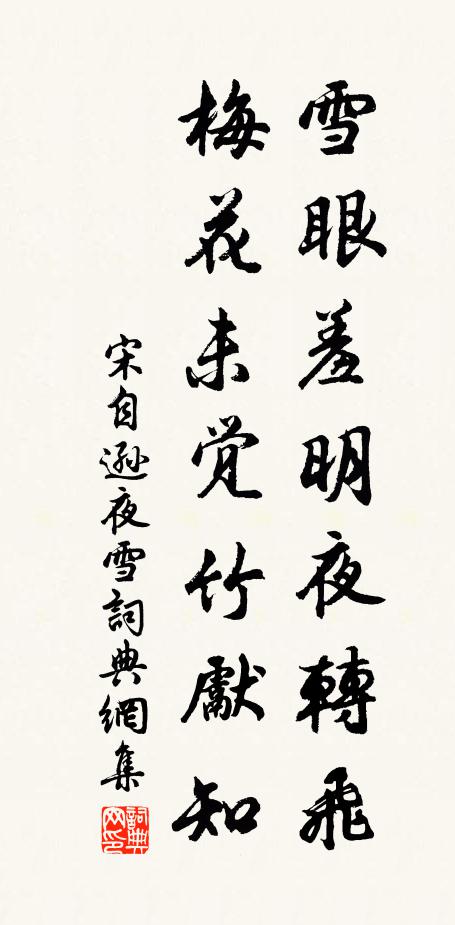 雪眼羞明夜轉飛
梅花未覺竹獻知
宋自遜夜雪詞典網集
詞典网印